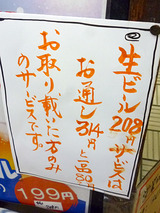 生ビール208円サービスは
お通し314円と一品80円
お取り載いた方のみ
のサービスです。
199円